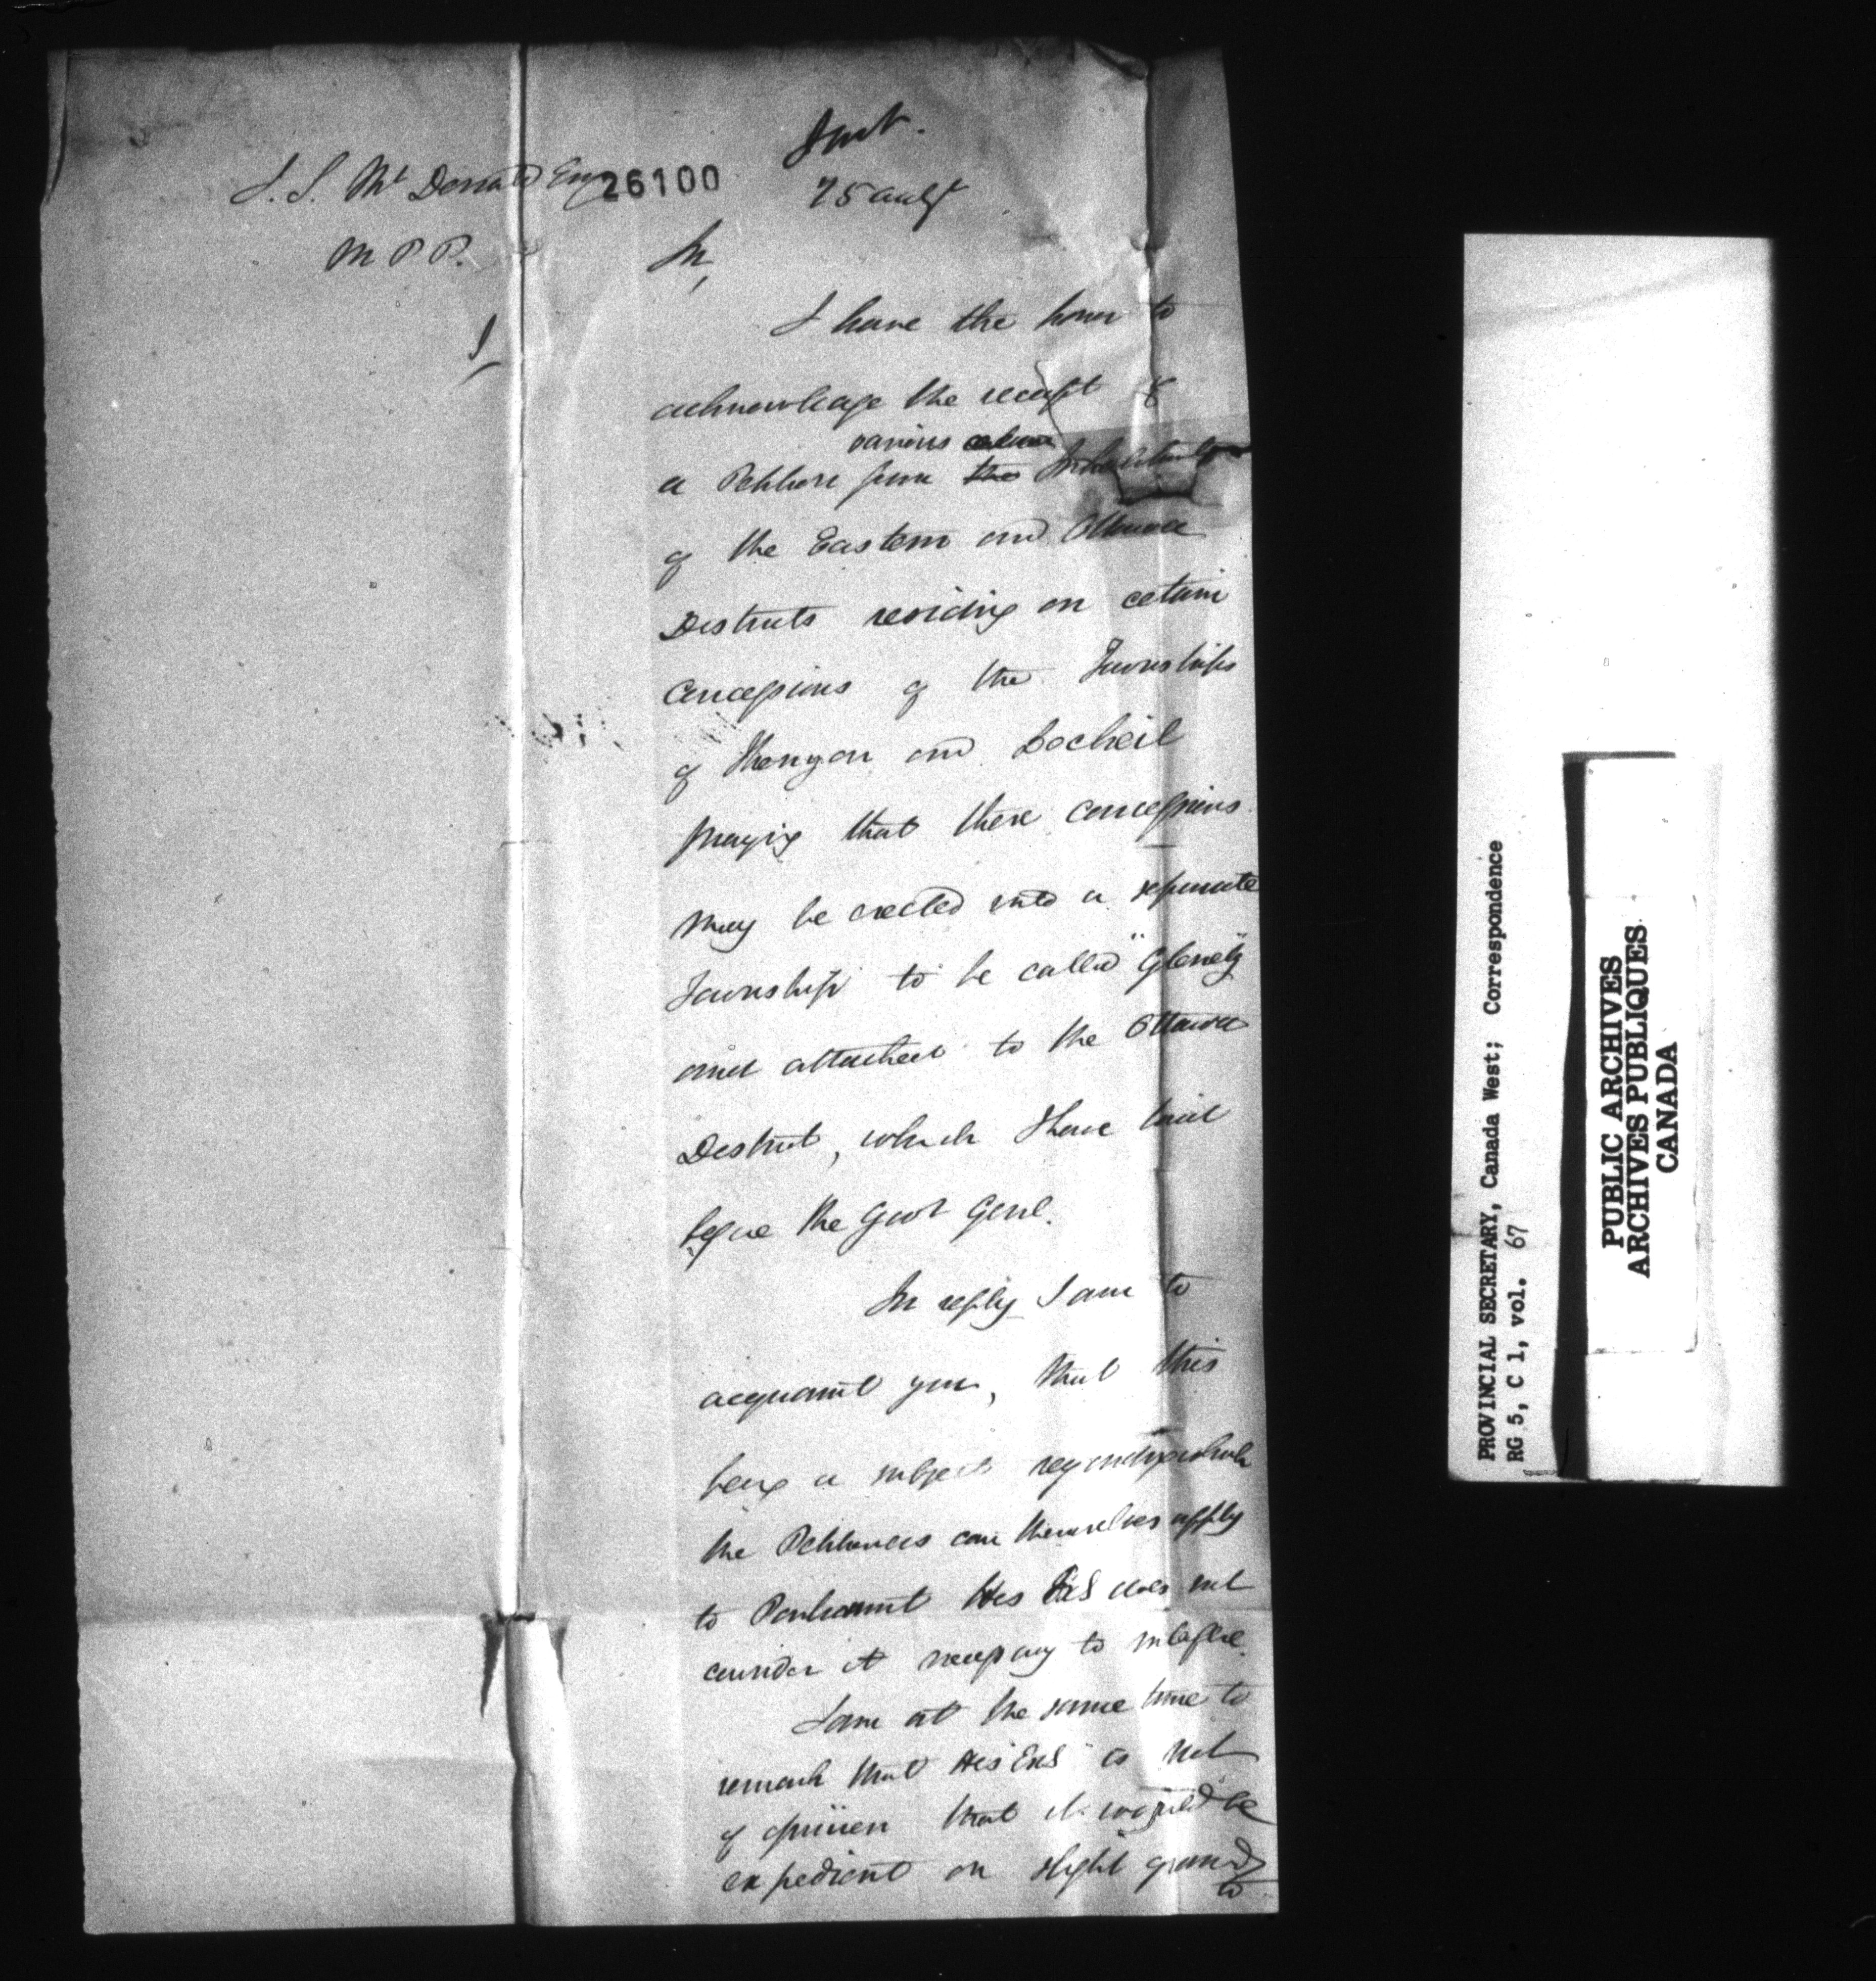 J. S. Mc Donald Esq
M P P.
26100
25 Augt
Sir,
I have the honor to
acknowledge the receipt of
various
a Petition from the Inhabitants
of the Eastern and Ottawa
Districts residing on certain
Concessions of the Townships
of Kenyon and Locheil
praying that these concessions
may be erected into a separate
Township to be called "Glenelg"
and attached to the Ottawa
District, which I have laid
before the Govr Genl.
In reply I am to
acquaint you, that this
being a subject regarding which
the Petitioners can themselves apply
to Parliament His Exs does not
consider it necessary to interfere.
I am at the same time to
remark that His Exs is not
of opinion that it would be
expedient on slight grounds
to
PROVINCIAL SECRETARY, Canada West; Correspondence
RG 5, C 1, vol. 67
PUBLIC ARCHIVES
ARCHIVES PUBLIQUES
CANADA